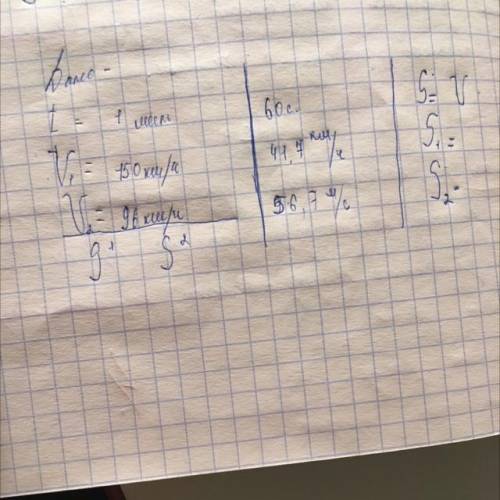 Дано -
t = 1 мин
V₁ = 150 км/ч
V₂ = 96 км/ч
S¹ S²
60 с.
41,7 км/ч
56,7 м/с
S = V
S₁ =
S₂ =